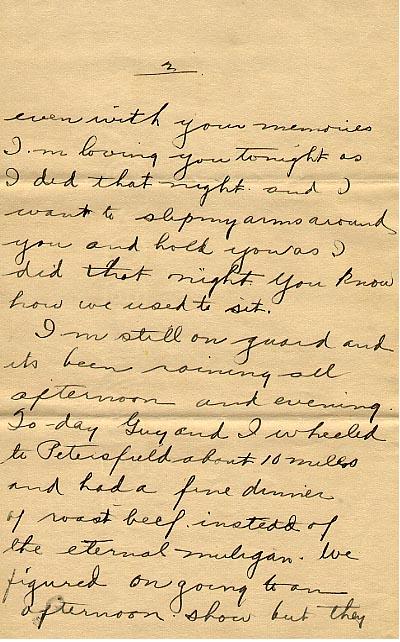 2.
even with your memories
I'm loving you tonight as
I did that night. and I
want to slip my arms around
you and hold you as I
did that night You know
how we used to sit.
I'm still on guard and
its been raining all
afternoon and evening.
To-day Guy and I wheeled
to Petersfield about 10 miles
and had a fine dinner
of roast beef. instead of
the eternal muligan. We
figured on going to an
afternoon. show but they